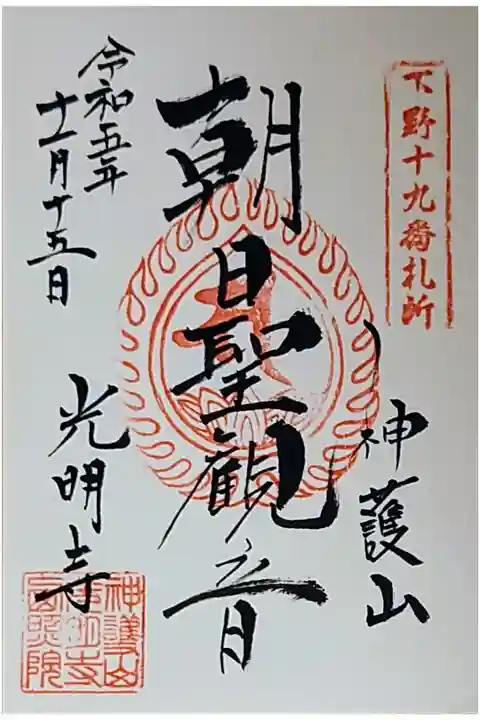 下野十九番札所
神護山
朝日聖観音
令和五年
十一月十五日
光明寺
神護山
光明寺
真照院